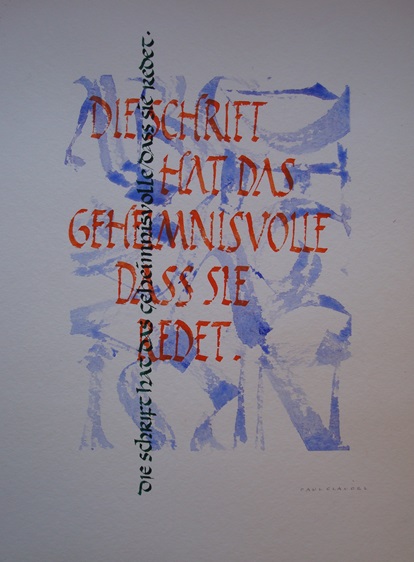 DIE SCHRIFT
HAT DAS
GEHEIMNISVOLLE
DASS SIE
REDET.
die schrift hat das geheimnisvolle dass sie redet.